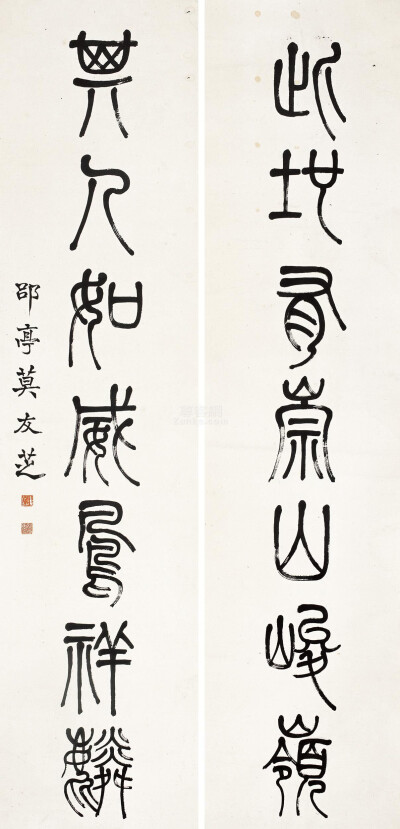 此地有崇山峻嶺
其人如威鳳祥麟
郘亭莫友芝